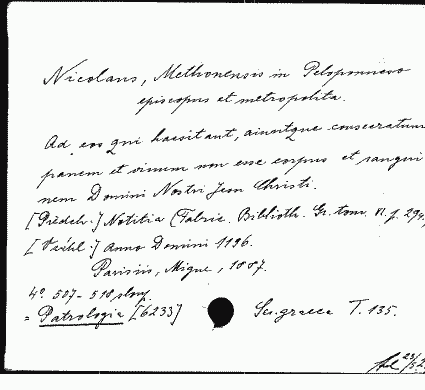 Nicolaus, Methonensis in Peloponneso
episcopus et metropolita.
Ad eos qui haesitant, aiuntque consecratum
panem et vinum non esse corpus et sangui
nem Domini Nostri Jesu Christi.
[Předch.] Notitia (Fabric. Biblioth. Gr. tom. XI. p. 290,
[Včehl.] Anno Domini 1196.
Parisiis, Migne, 1887.
4º. 507-518 slp.
= Patrologia [6233] Ser. graeca T. 135.